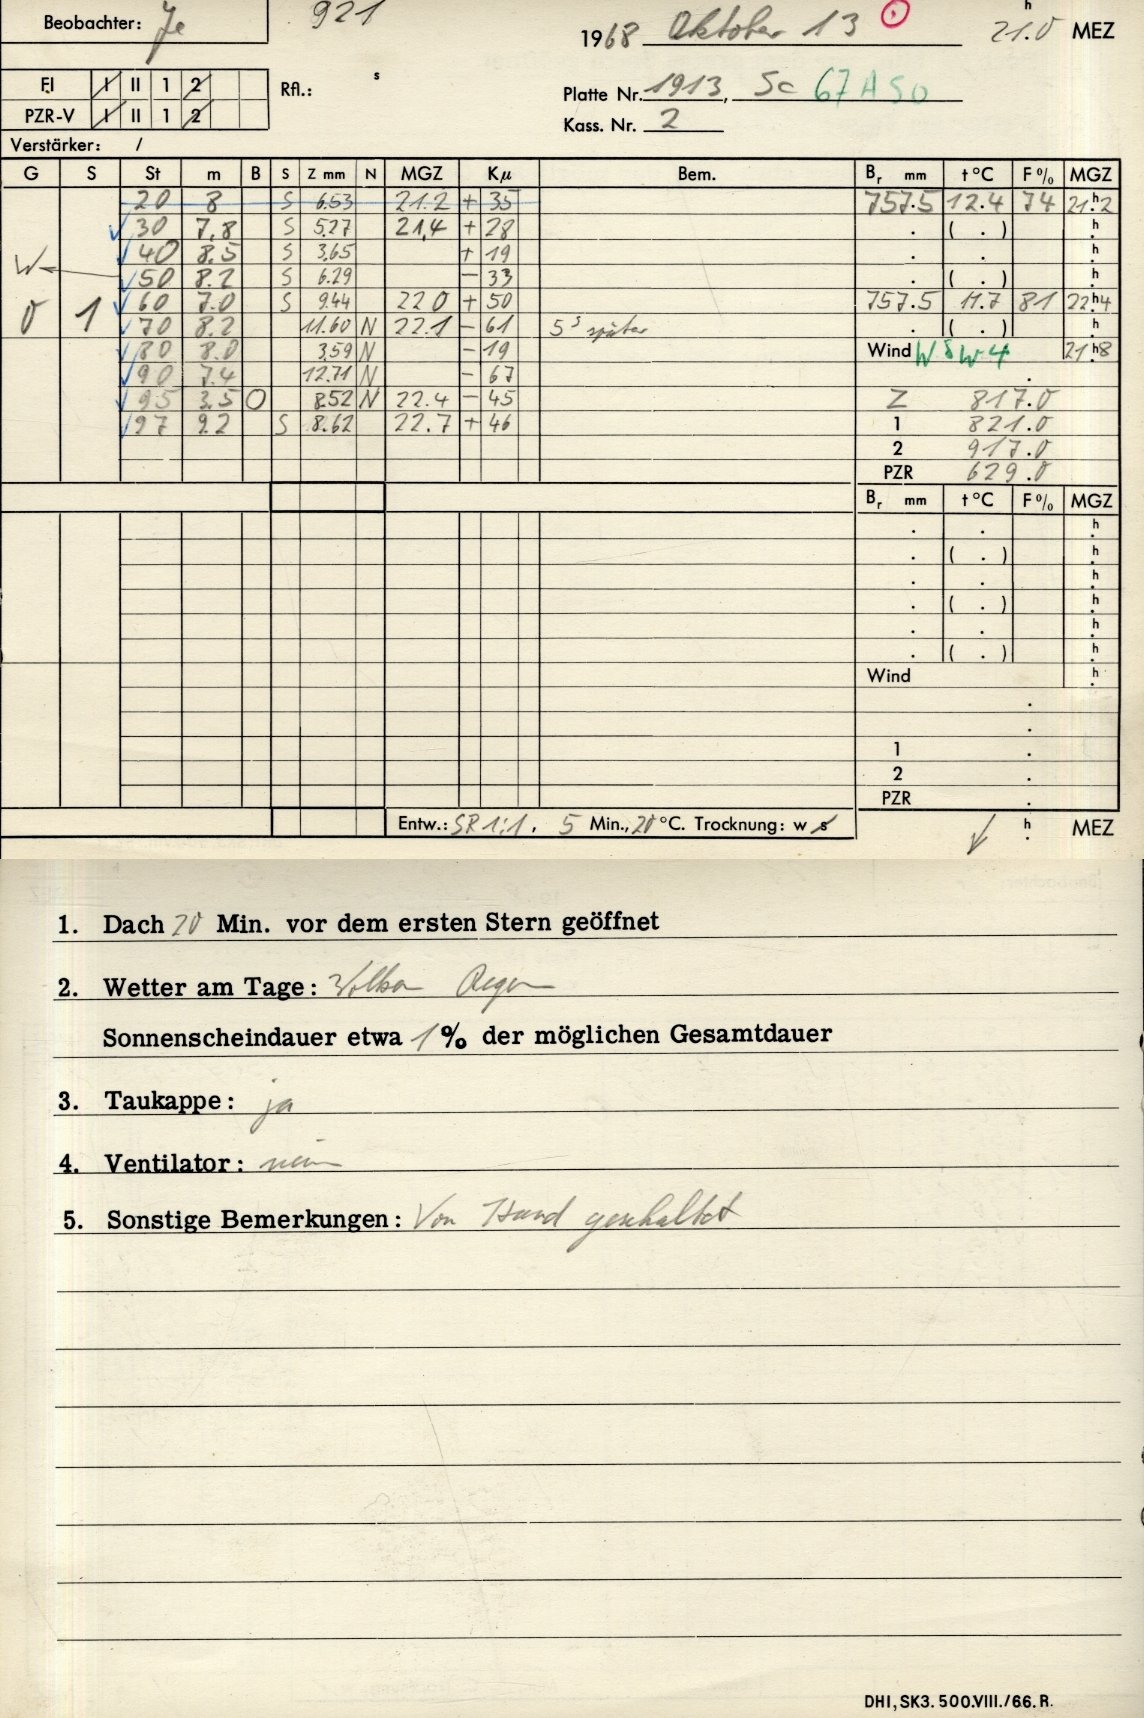 Beobachter: Je
921
1968 Oktober 13
21.0 h MEZ
FI I II 1 2
PZR-V I II 1 2
Rfl.: s
Platte Nr. 1913, Sc 67 A 50
Kass. Nr. 2
Verstärker: /
G S St m B S Z mm N MGZ Kμ Bem. Br mm t °C F % MGZ
20 8 S 6.53 21.2 + 35 757.5 12.4 74 21h.2
30 7.8 S 5.27 21.4 + 28 . ( . ) h
40 8.5 S 3.65 + 19 . . h
W 50 8.2 S 6.29 − 33 . ( . ) h
0 1 60 7.0 S 9.44 22 0 + 50 757.5 11.7 81 22h4
70 8.2 11.60 N 22.1 − 61 5 s später . ( . ) h
80 8.0 3.59 N − 19 Wind WSW 4 21h8
90 7.4 12.71 N − 67 .
95 3.5 O 8.52 N 22.4 − 45 Z 817.0
97 9.2 S 8.62 22.7 + 46 1 821.0
2 917.0
PZR 629.0
Br mm t °C F % MGZ
. . h
. ( . ) h
. . h
. ( . ) h
. . h
. ( . ) h
Wind h
.
.
1 .
2 .
PZR .
Entw.: SR 1:1, 5 Min., 20 °C. Trocknung: w s
h MEZ
1. Dach 20 Min. vor dem ersten Stern geöffnet
2. Wetter am Tage: Wolken Regen
Sonnenscheindauer etwa 1 % der möglichen Gesamtdauer
3. Taukappe: ja
4. Ventilator: nein
5. Sonstige Bemerkungen: Von Hand geschaltet
DHI, SK3. 500.VIII./66. R.